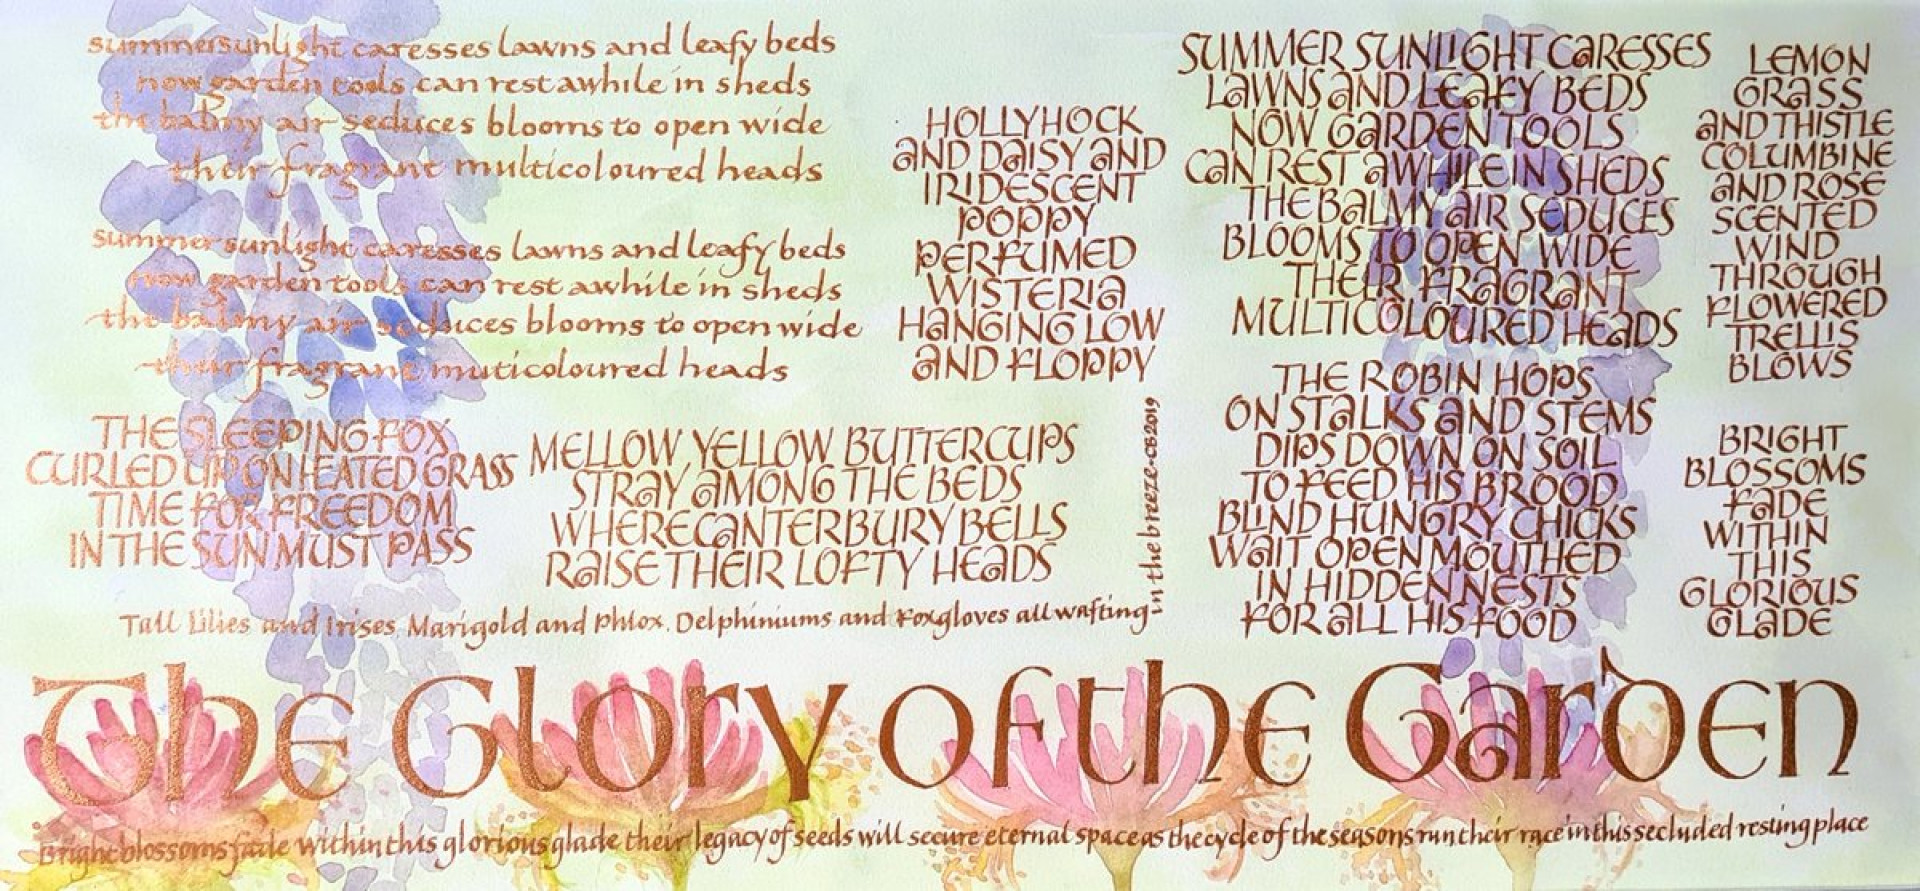 summer sunlight caresses lawns and leafy beds
now garden tools can rest awhile in sheds
the balmy air seduces blooms to open wide
their fragrant multicoloured heads
summer sunlight caresses lawns and leafy beds
now garden tools can rest awhile in sheds
the balmy air seduces blooms to open wide
their fragrant muticoloured heads
THE SLEEPING FOX
CURLED UP ON HEATED GRASS
TIME FOR FREEDOM
IN THE SUN MUST PASS
HOLLYHOCK
AND DAISY AND
IRIDESCENT
POPPY
PERFUMED
WISTERIA
HANGING LOW
AND FLOPPY
MELLOW YELLOW BUTTERCUPS
STRAY AMONG THE BEDS
WHERE CANTERBURY BELLS
RAISE THEIR LOFTY HEADS
Tall Lilies and Irises Marigold and Phlox. Delphiniums and Foxgloves all wafting
in the breeze-CB2019
SUMMER SUNLIGHT CARESSES
LAWNS AND LEAFY BEDS
NOW GARDEN TOOLS
CAN REST AWHILE IN SHEDS
THE BALMY AIR SEDUCES
BLOOMS TO OPEN WIDE
THEIR FRAGRANT
MULTICOLOURED HEADS
THE ROBIN HOPS
ON STALKS AND STEMS
DIPS DOWN ON SOIL
TO FEED HIS BROOD
BLIND HUNGRY CHICKS
WAIT OPEN MOUTHED
IN HIDDEN NESTS
FOR ALL HIS FOOD
LEMON
GRASS
AND THISTLE
COLUMBINE
AND ROSE
SCENTED
WIND
THROUGH
FLOWERED
TRELLIS
BLOWS
BRIGHT
BLOSSOMS
FADE
WITHIN
THIS
GLORIOUS
GLADE
The Glory of the Garden
Bright blossoms fade within this glorious glade their legacy of seeds will secure eternal space as the cycle of the seasons run their race in this secluded resting place